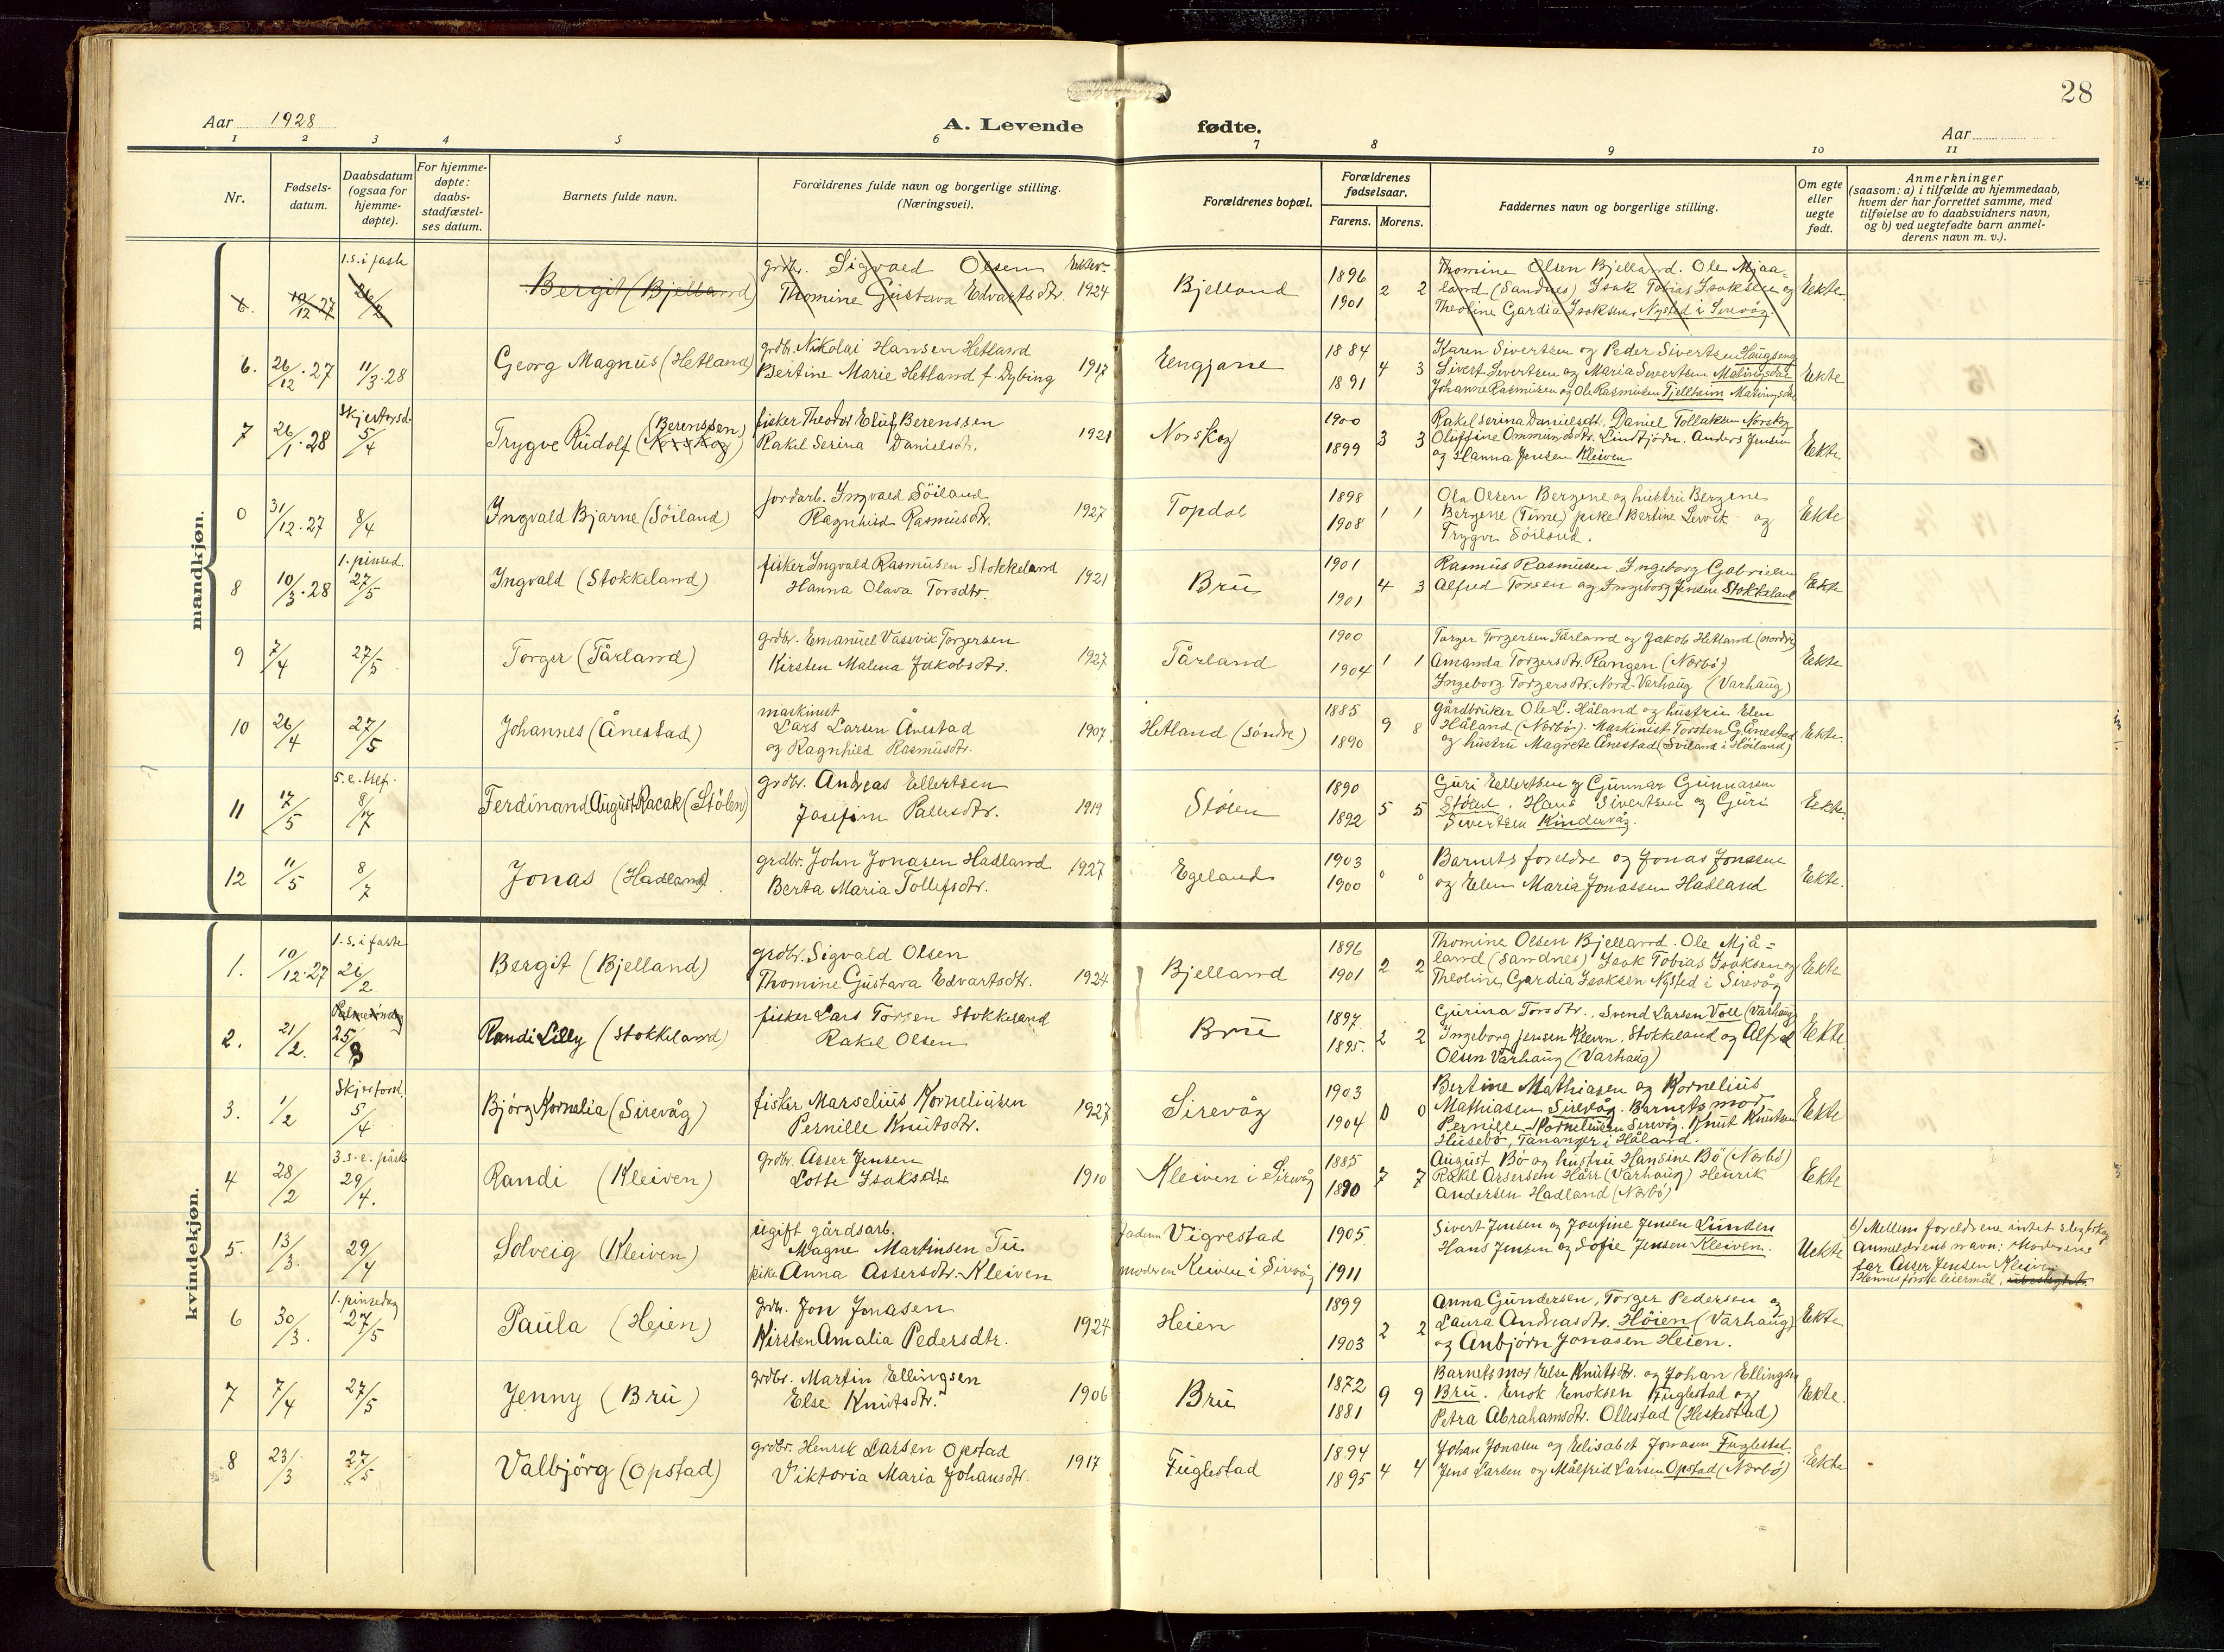 28
Aar 1928
A. Levende fødte.
Aar
1 2 3 4 5 6 7 8 9 10 11
Nr.
Fødsels-
datum.
Daabsdatum
(ogsaa for
hjemme-
døpte).
For hjemme-
døpte:
daabs-
stadfæstel-
ses datum.
Barnets fulde navn.
Forældrenes fulde navn og borgerlige stilling.
(Næringsvei).
Forældrenes bopæl.
Forældrenes
fødselsaar.
Farens. Morens.
Faddernes navn og borgerlige stilling.
Om egte
eller
uegte
født.
Anmerkninger
(saasom: a) i tilfælde av hjemmedaab,
hvem der har forrettet samme, med
tilføielse av to daabsvidners navn,
og b) ved uegtefødte barn anmel-
derens navn m. v.).
mandkjøn.
1.s. i faste
6. 10/12 27 26/2
Bergit (Bjelland)
grdbr. Sigvald Olsen
Thomine Gustava Edvartsdtr. 1924
Bjelland
1896
1901
2 2
Thomine Olsen Bjelland. Ole Mjaa-
land (Sandnes) Isak Tobias Isaksen og
Theoline Gardia Isaksen Nysted i Sirevåg.
Ekte.
6. 26/12 · 27 11/3 · 28
Georg Magnus (Hetland)
grdbr. Nikolai Hansen Hetland
Bertine Marie Hetland f. Dybing 1917
1884
1891
4 3
Karen Sivertsen og Peder Sivertsen
Sivert Sivertsen og Maria Sivertsen
Johanne Rasmusen og Ole Rasmusen Fjellheim
Ekte
Skjertorsd.
7 26/1 · 28 5/4
Trygve Rudolf (Norskog) (Berenssen)
fisker Theodor Eluf Berenssen
Rakel Serina Danielsdtr. 1921
Norskog
1900
1899
3 3
Rakel Serina Danielsdt. Daniel Tollaksen Norskog
Oluffine Ommundsdtr. Lindtjörn. Anders Jensen
og Hanna Jensen Kleiven
Ekte
0 31/12 · 27 8/4
Ingvald Bjarne (Söiland)
jordarb. Ingvald Söiland
Ragnhild Rasmusdtr. 1927
Topdal
1898
1908
1 1
Ola Olsen Bergene og hustru Bergene
Bergene (Time) pike Bertine og
Trygve Söiland.
Ekte
1. pinsed.
8 10/3 · 28 27/5
Ingvald (Stokkeland)
fisker Ingvald Rasmusen Stokkeland
Hanna Olava Torsdtr. 1921
Bru
1901
1901
4 3
Rasmus Rasmusen, Ingeborg Gabrielsen
Alfred Torsen og Ingeborg Jensen Stokkeland
Ekte
9 7/4 27/5
Torger (Tårland)
grdbr. Emanuel Vassvik Torgersen
Kirsten Malena Jakobsdtr. 1927
Tårland
1900
1904
1 1
Torger Torgersen Tårland og Jakob Hetland (nordre)
Amanda Torgersdtr. Rangen (Narbö)
Ingeborg Torgersdtr. Nord-Varhaug (Varhaug)
Ekte
10 26/4 27/5
Johannes (Ånestad)
maskinist
Lars Larsen Ånestad
og Ragnhild Rasmusdtr. 1907
Hetland (söndre)
1885
1890
9 8
gårdbruker Ole L. Håland og hustru Elen
Håland (Narbö). Maskinist Torsten G. Ånestad
og hustru Magrete Ånestad (Sviland i Höiland)
Ekte.
5. e. tref.
11 17/5 8/7
Ferdinand August Racak (Stölen)
grdbr. Andreas Ellertsen
Josefine Pallesdtr. 1919
Stölen
1890
1892
5 5
Guri Ellertsen og Gunnar Gunnarsen
Stölen. Hans Sivertsen og Guri
Sivertsen Kindervåg.
Ekte.
12 11/5 8/7
Jonas (Hadland)
grdbr. John Jonasen Hadland
Berta Maria Tollefsdtr. 1927
Egeland
1903
1900
0 0
Barnets foreldre og Jonas Jonasen
og Elen Maria Jonassen Hadland
Ekte.
kvindekjøn.
1. s. i faste
1. 10/12 · 27 26/2
Bergit (Bjelland)
grdbr. Sigvald Olsen
Thomine Gustava Edvartsdtr. 1924
Bjelland
1896
1901
2 2
Thomine Olsen Bjelland. Ole Mjå-
land (Sandnes) Isak Tobias Isaksen og
Theoline Gardia Isaksen Nysted i Sirevåg
Ekte
Palmesöndag
2. 21/2. 25/3
Randi Lilly (Stokkeland)
fisker Lars Torsen Stokkeland
Rakel Olsen
Bru
1897
1895.
2 2
Gurina Torsdtr., Svend Larsen Voll (Varhaug)
Ingeborg Jensen Kleven. Stokkeland og Alfred
Olsen Varhaug (Varhaug)
Ekte.
Skjertorsd.
3. 1/2 5/4
Björg Kornelia (Sirevåg)
fisker Marselius Korneliusen
Pernille Knutsdtr. 1927
Sirevåg
1903
1904
0 0
Bertine Mathiasen og Kornelius
Mathiasen Sirevåg. Barnets mor
Pernille Korneliusen Sirevåg. Knut Knutsen
Husebö, Tananger i Håland.
Ekte
3. s. e. påske
4 28/2 29/4.
Randi (Kleiven)
Grdbr. Asser Jensen
Lotte Isaksdtr. 1910
Kleiven i Sirevåg
1885
1890
7 7
August Bö og hustru Hansine Bö (Narbö)
Rakel Assersen Hårr (Varhaug) Henrik
Andersen Hadland (Narbö)
Ekte
5. 13/3. 29/4
Solveig (Kleiven)
ugift gårdsarb.
Magne Martinsen Tu
pike Anna Assersdtr. Kleiven
faderen Vigrestad
moderen Kleiven i Sirevåg
1905
1911
Sivert Jensen og Josefine Jensen Lunden
Hans Jensen og Sofie Jensen Kleiven.
Uekte
b) Mellem foreldrene intet slegtskap
Anmelderens navn: Moderens
far Asser Jensen Kleiven
Hennes første leiermål.
1. pinsedag
6 30/3. 27/5
Paula (Heien)
grdbr. Jon Jonasen
Kirsten Amalia Pedersdtr. 1924
Heien
1899
1903
2 2
Anna Gundersen, Torger Pedersen og
Laura Andreasdtr. Höien (Varhaug)
og Anbjörn Jonasen Heien.
Ekte
7 7/4 27/5
Jenny (Bru)
grdbr. Martin Ellingsen
Else Knutsdtr. 1906
Bru
1872
1881
9 9
Barnets mor Else Knutsdtr. og Johan Ellingsen
Bru. Enok Enoksen Fuglestad og
Petra Abrahamsdtr. Ollestad (Heskestad)
Ekte.
8 23/3 27/5
Valbjörg (Opstad)
grdbr. Henrik Larsen Opstad
Viktoria Maria Johansdtr. 1917
Fuglestad
1894
1895
4 4
Johan Jonasen og Elisabet Jonasen Fuglestad.
Jens Larsen og Målfrid Larsen Opstad (Narbö)
Ekte